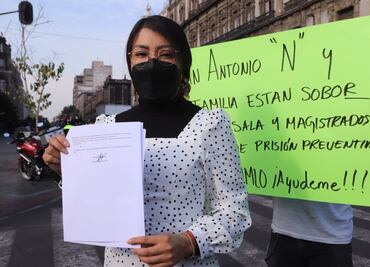 N ANTONIO "N" Y
FAMILIA ESTAN SOBOR
SALA Y MAGISTRADOS
DE PRISIÓN PREVENTI
MLO ¡AYUDEME!!!